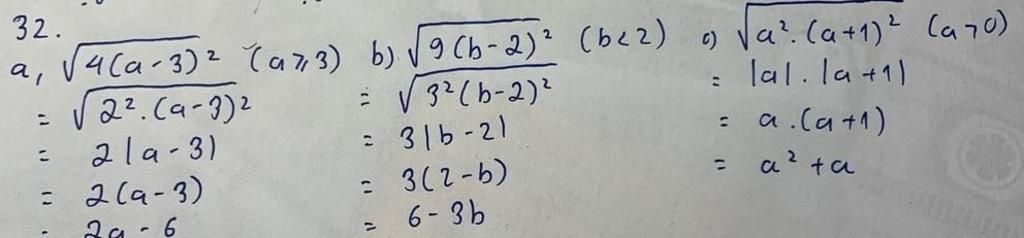 32.
a, √4(a-3)² (a⩾3)
= √2².(a-3)²
= 2|a-3|
= 2(a-3)
= 2a-6
b) √9(b-2)² (b<2)
= √3²(b-2)²
= 3|b-2|
= 3(2-b)
= 6-3b
c) √a².(a+1)² (a>0)
= |a|.|a+1|
= a.(a+1)
= a²+a